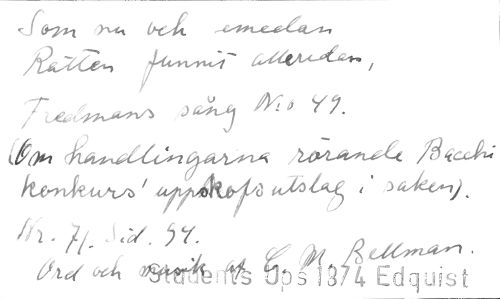 Som nu och emedan
Rätten funnit alleredan,
Fredmans sång N:o 49.
(Om handlingarna rörande Bacchi
konkurs' uppskofsutslag i saken).
Nr. 71. Sid. 94.
Ord och musik af C. M. Bellman.
Students Ups 1874 Edquist